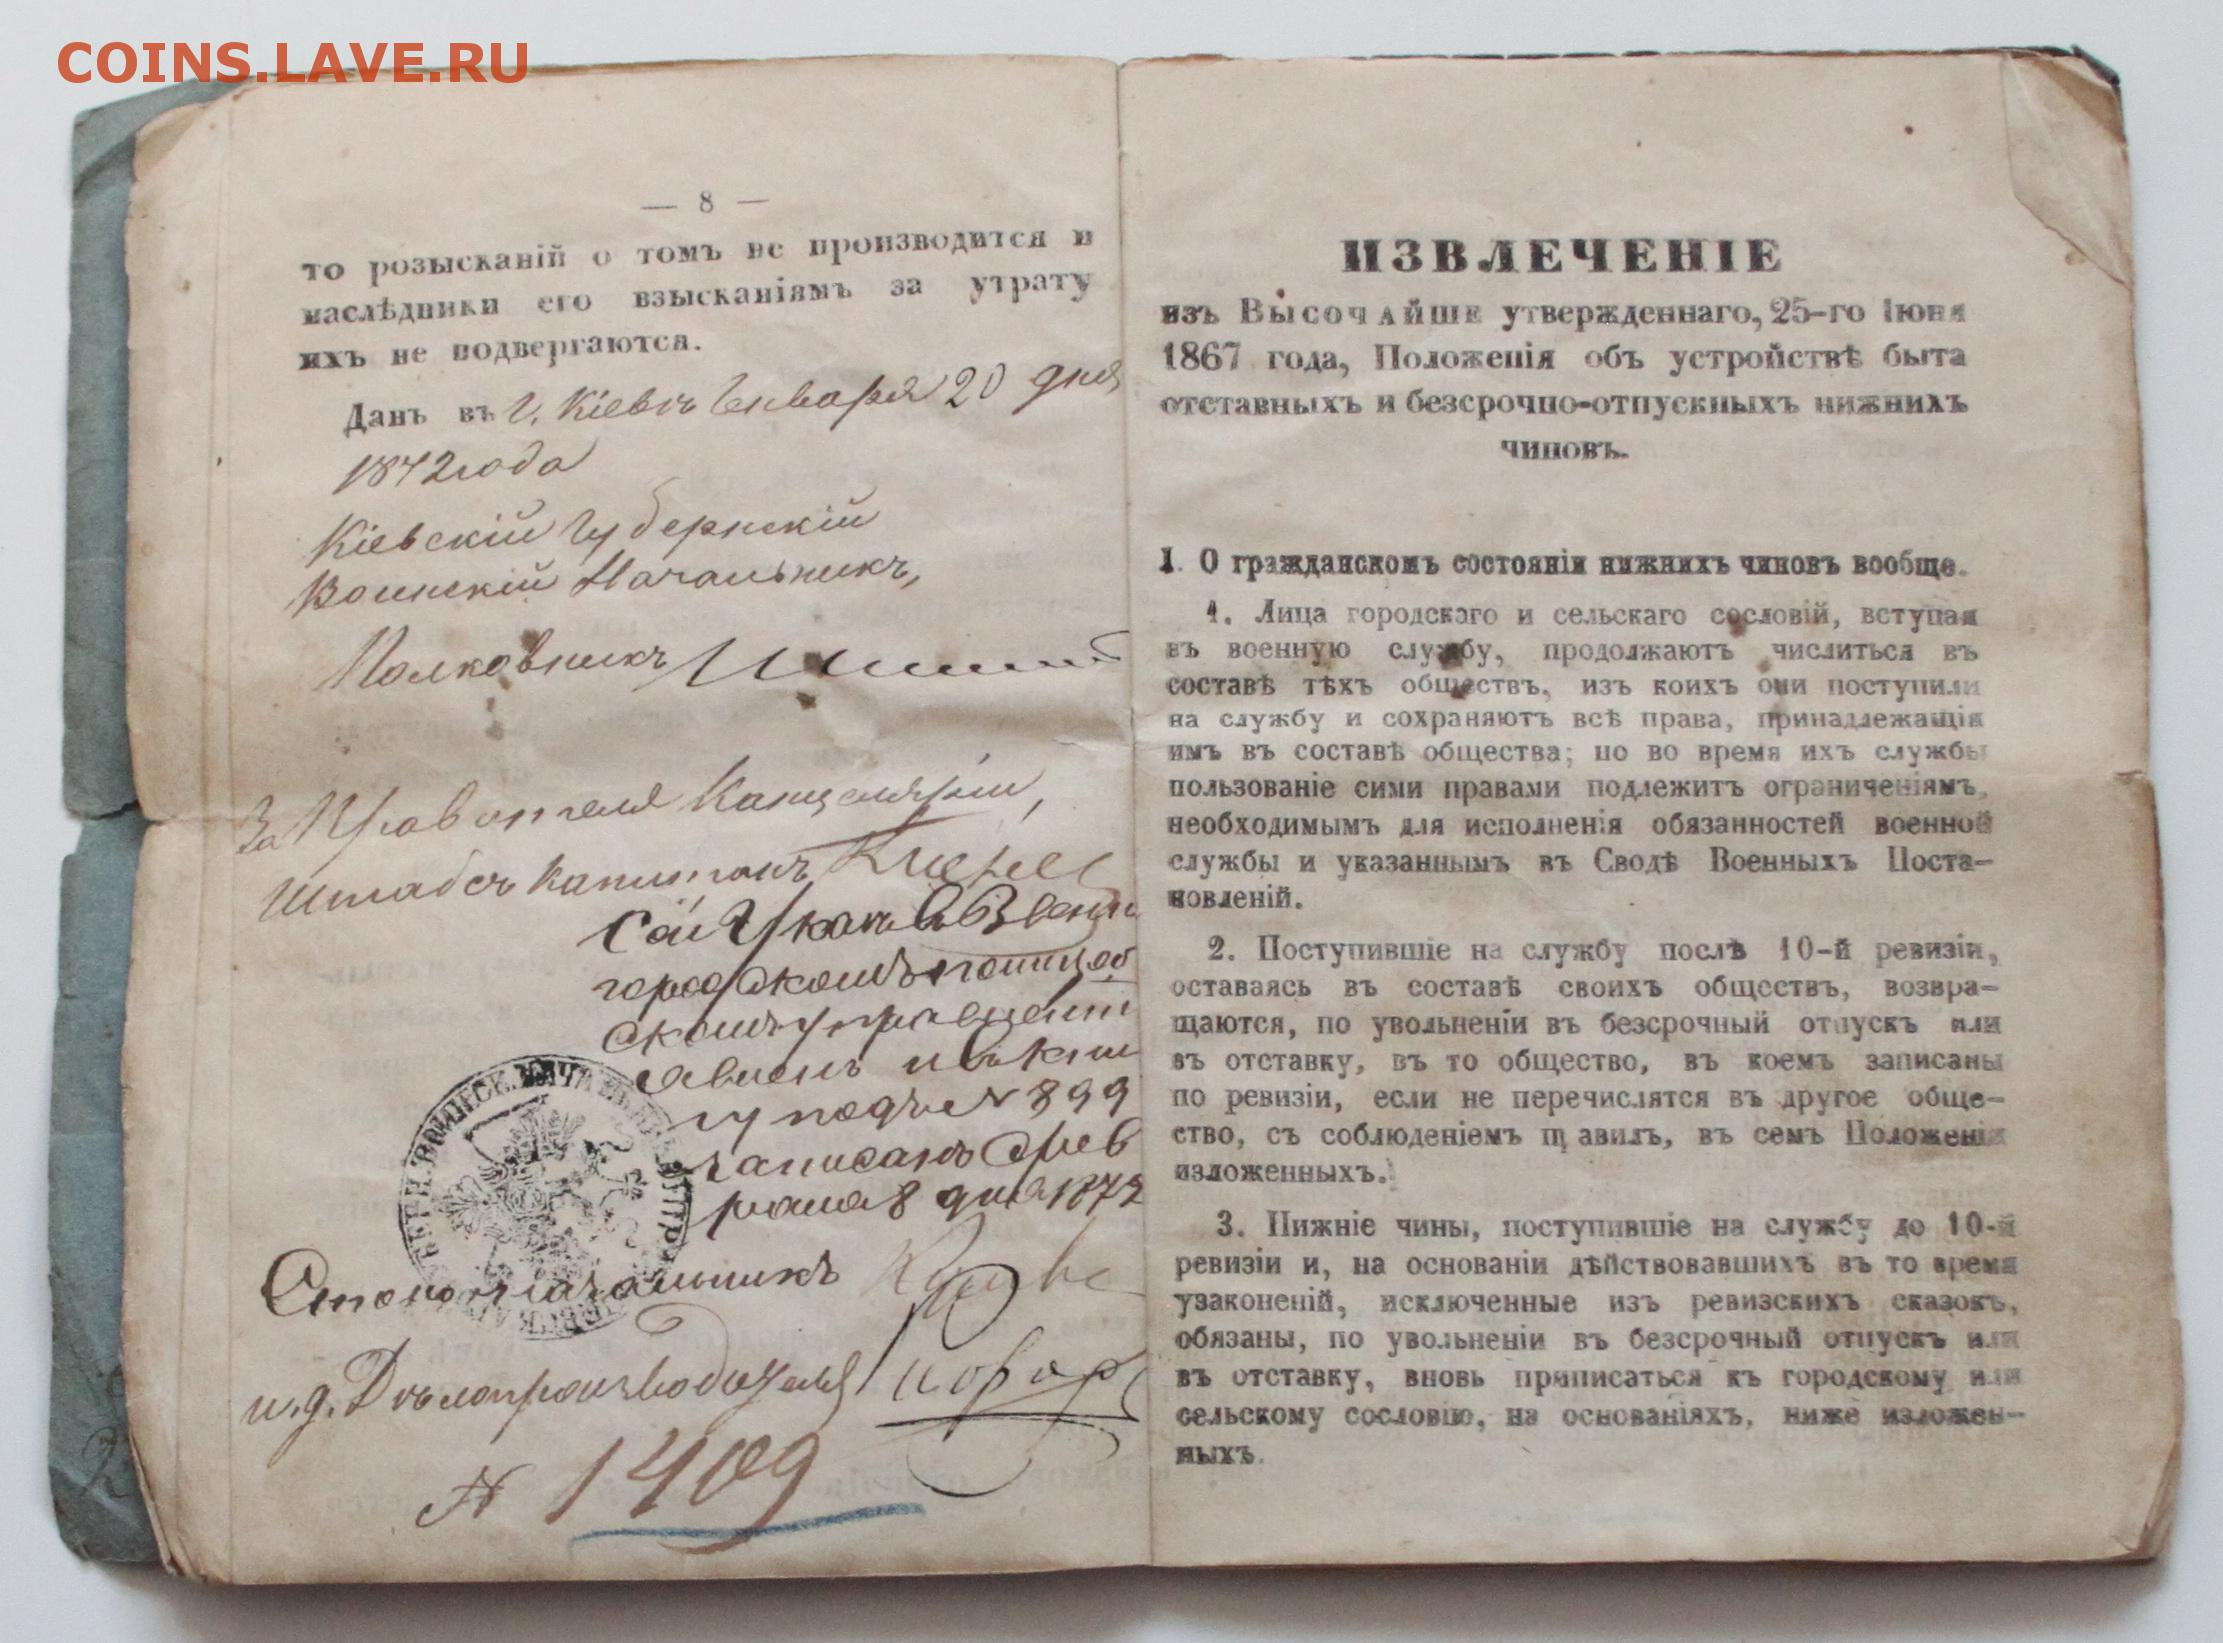 COINS.LAVE.RU
— 8 —
то розысканій о томъ не производится и
наслѣдники его взысканіямъ за утрату
ихъ не подвергаются.
Данъ въ г. Кіевѣ Января 20 дня
1872 года
Кіевскій Губернскій
Воинскій Начальникъ,
Полковникъ
За Правителя Канцеляріи,
Штабсъ Капитанъ
Сей Указъ въ
городскомъ полицей
скомъ управленіи
явленъ и въ кни
гу подъ № 899
записанъ Фев
раля 8 дня 1872
Столоначальникъ
и. д. Дѣлопроизводителя
№ 1409
ИЗВЛЕЧЕНІЕ
изъ Высочайше утвержденнаго, 25-го Іюня
1867 года, Положенія объ устройствѣ быта
отставныхъ и безсрочно-отпускныхъ нижнихъ
чиновъ.
I. О гражданскомъ состояніи нижнихъ чиновъ вообще.
1. Лица городскаго и сельскаго сословій, вступая
въ военную службу, продолжаютъ числиться въ
составѣ тѣхъ обществъ, изъ коихъ они поступили
на службу и сохраняютъ всѣ права, принадлежащія
имъ въ составѣ общества; но во время ихъ службы
пользованіе сими правами подлежитъ ограниченіямъ,
необходимымъ для исполненія обязанностей военной
службы и указаннымъ въ Сводѣ Военныхъ Поста-
новленій.
2. Поступившіе на службу послѣ 10-й ревизіи,
оставаясь въ составѣ своихъ обществъ, возвра-
щаются, по увольненіи въ безсрочный отпускъ или
въ отставку, въ то общество, въ коемъ записаны
по ревизіи, если не перечислятся въ другое обще-
ство, съ соблюденіемъ правилъ, въ семъ Положеніи
изложенныхъ.
3. Нижніе чины, поступившіе на службу до 10-й
ревизіи и, на основаніи дѣйствовавшихъ въ то время
узаконеній, исключенные изъ ревизскихъ сказокъ,
обязаны, по увольненіи въ безсрочный отпускъ или
въ отставку, вновь приписаться къ городскому или
сельскому сословію, на основаніяхъ, ниже изложен-
ныхъ.